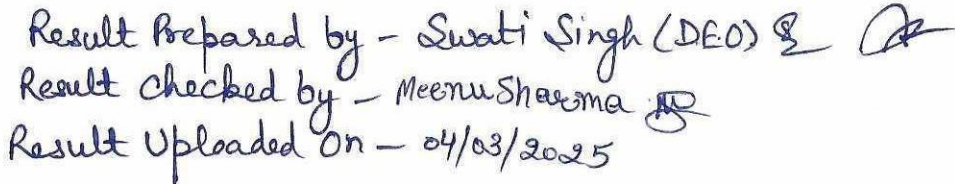 Result Prepared by - Swati Singh (DEO)
Result checked by - Meenu Sharma
Result Uploaded On - 04/03/2025